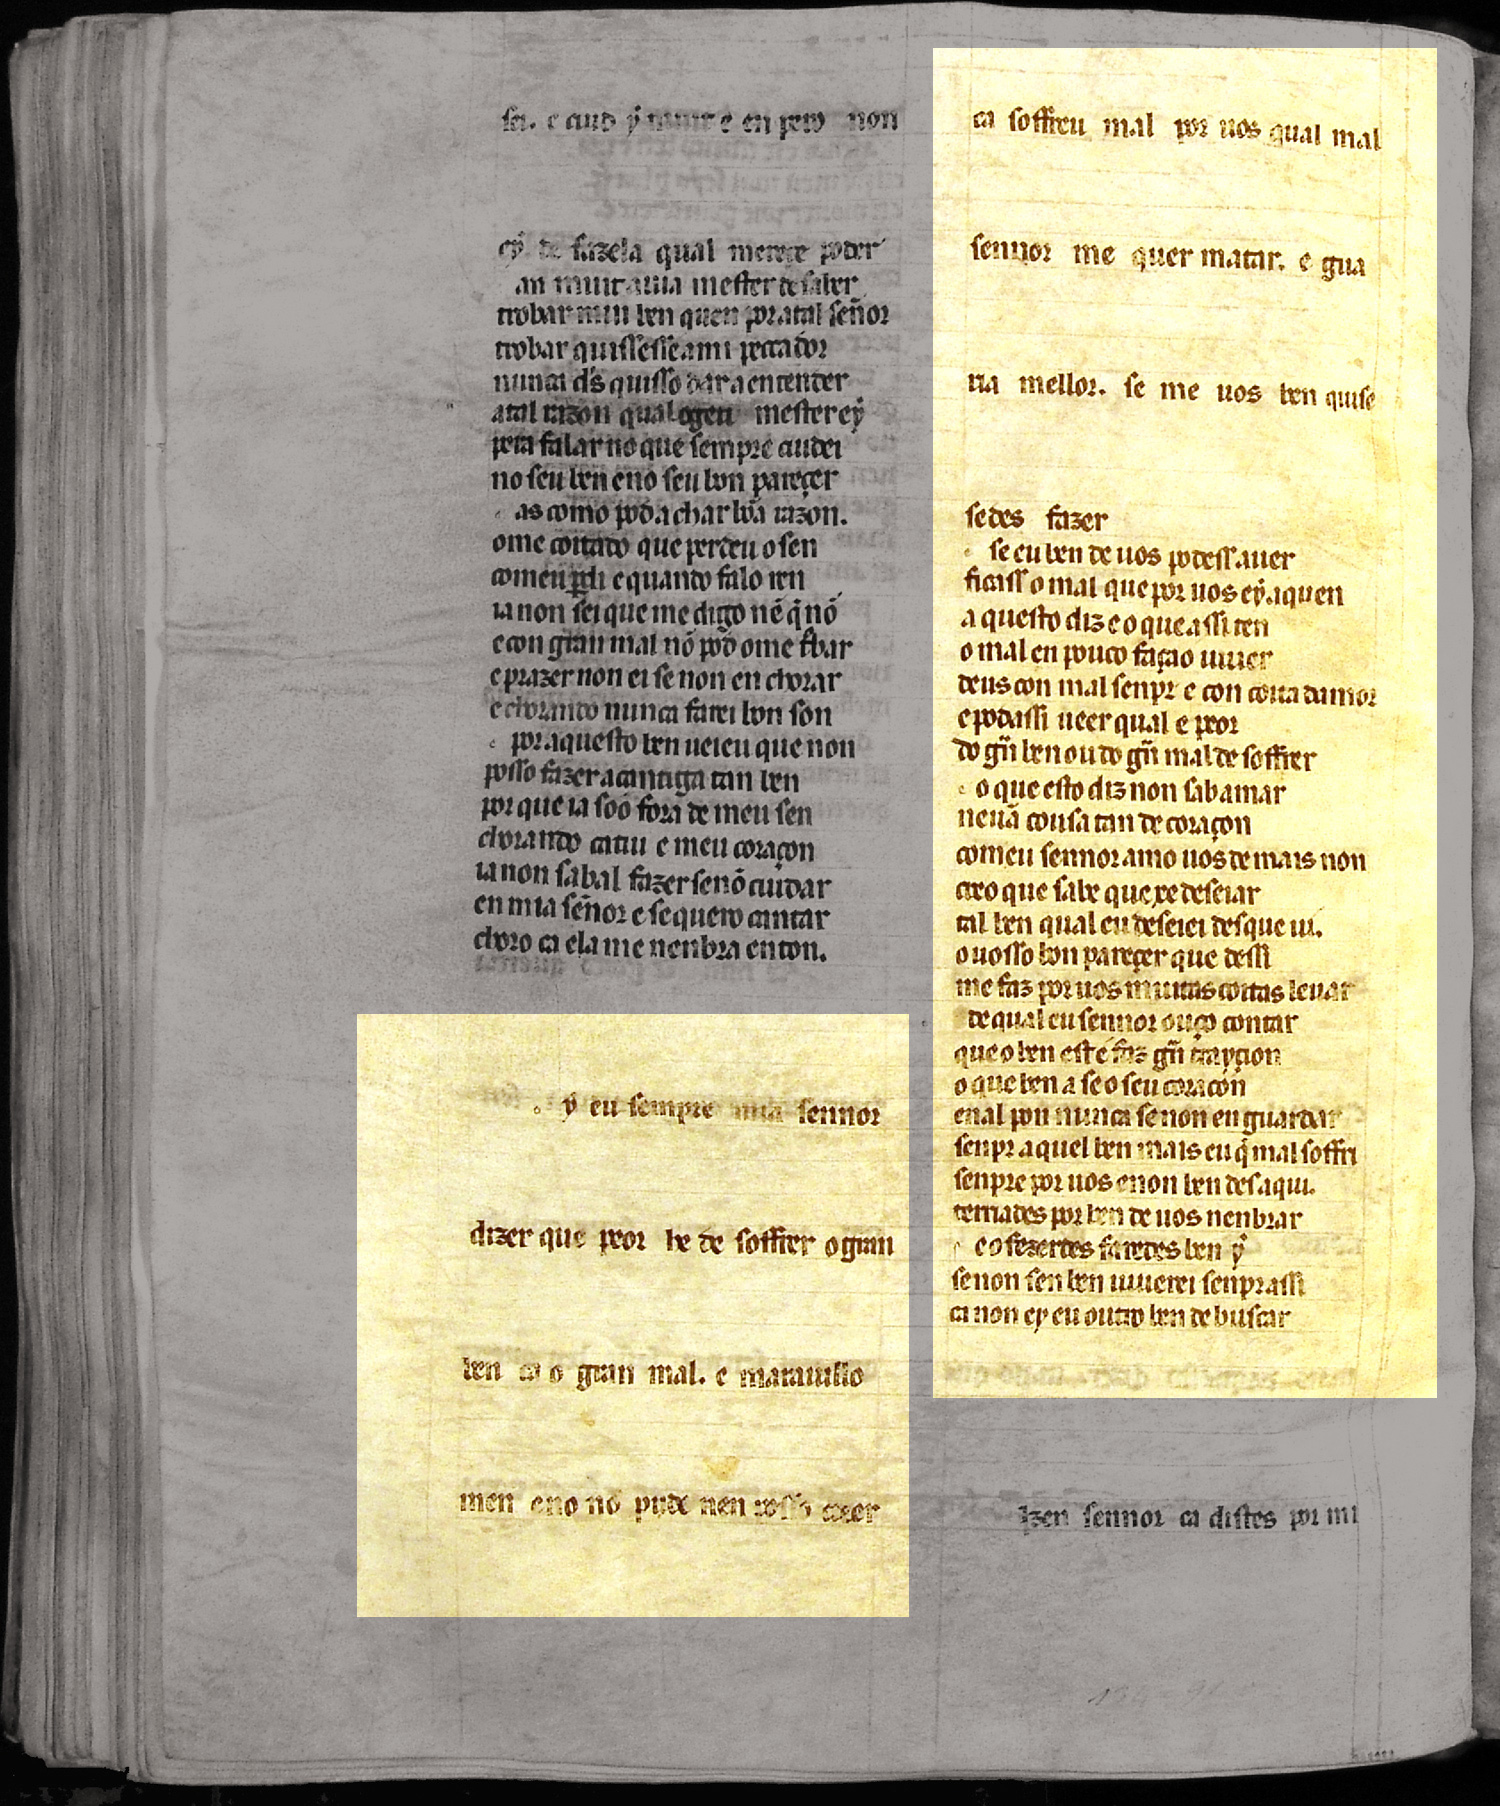 sei. e cuid ý muit e en pero non
eý de fazela qual mereçe poder
an muit auia mester de saber
trobar mui ben quen por atal señor
trobar quisses se ami peccador
nunca ds̃ quisso dar a entender
atal razon qual ogeu mester eý
pera falar no que sempre cuidei
no seu ben eno seu bon pareçer
as como pod achar bõa razon.
ome coitado que perdeu o sen
comeu perdi e quando falo ren
ia non sei que me digo nẽ q̃ nõ
e con gran mal nõ pod ome t̃bar
e prazer non ei se non en chorar
e chorando nunca farei bon son
por aquesto ben uei eu que non
posso fazer a cantiga tan ben
por que ia soõ fora de meu sen
chorando catiu e meu coraçon
ia non sabal fazer senõ cuidar
en mia señor e se quero cantar
choro ca ela me nenbra enton.
ý eu sempre mia sennor
dizer que peor he de soffrer o gran
ben ca o gran mal. e marauillo
men eno nõ pude nen posso creer
ca soffreu mal por uos qual mal
sennor me quer matar. e gua
ria mellor. se me uos ben quise
sedes fazer
se eu ben de uos podess auer
ficass o mal que por uos eý. aquen
a questo diz e o que assi ten
o mal en pouco façao uiuer
deus con mal senpr e con coita damor
e podassi ueer qual e peor
do gñ ben ou do gñ mal de soffrer
o que esto diz non sab amar
neuã cousa tan de coraçon
comeu sennor amo uos de mais non
creo que sabe que xe deseiar
tal ben qual eu deseiei des que ui.
o uosso bon pareçer que dessi
me faz por uos muitas coitas leuar
de qual eu sennor ouço contar
que o ben este faz gñ trayçion
o que ben a se o seu coraçon
enal pon nunca se non en guardar
senpr aquel ben mais eu q̃ mal soffri
senpre por uos e non ben des aqui.
terriades por ben de uos nenbrar
e o fezerdes faredes ben ý
senon sen ben uiuerei senprassi
ca non ey eu outro ben de buscar
izen sennor ca distes por mi